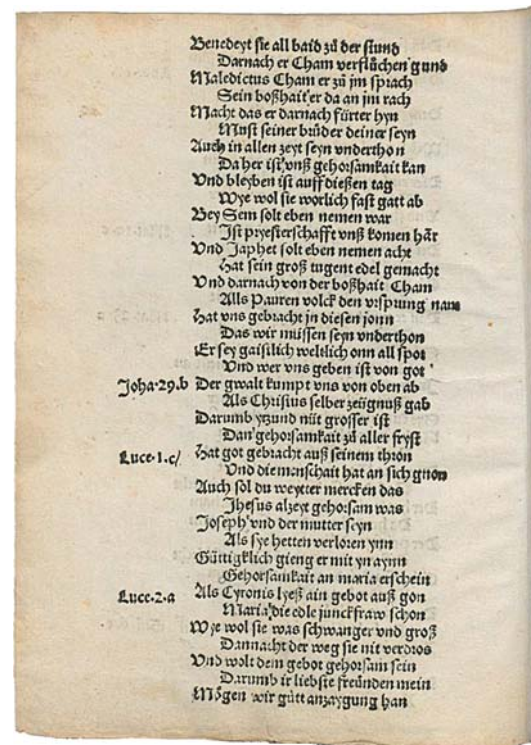 Benedeyt sie all baid zů der stund
Darnach er Cham verflůchen gund
Maledictus Cham er zů jm sprach
Sein boßhait er da an jm rach
Macht das er darnach fürter hyn
Must seiner brüder deiner seyn
Auch in allen zeyt seyn vnderthon
Da her ist vnß gehorsamkait kan
Vnd bleyben ist auff dießen tag
Wye wol sie worlich fast gatt ab
Bey Sem solt eben nemen war
Ist pryesterschafft vnß komen här
Vnd Japhet solt eben nemen acht
Hat sein groß tugent edel gemacht
Vnd darnach von der boßhait Cham
Alls Pauren volck den vrsprung nam
Hat vns gebracht in diesen jonn
Das wir müssen seyn vnderthon
Er sey gaistlich weltlich onn all spot
Vnd wer vns geben ist von got
Joha·29.b Der gwalt kumpt vns von oben ab
Als Christus selber zeügnuß gab
Darumb ytzund nüt grosser ist
Dan gehorsamkait zů aller fryst
Luce·1.c/ Hat got gebracht auß seinem thron
Vnd die menschait hat an sich gnon
Auch sol du weytter mercken das
Jhesus alzeyt gehorsam was
Joseph vnd der mutter seyn
Als sye hetten verloren ynn
Güttigklich gieng er mit yn aynn
Gehorsamkait an maria erschein
Luce·2·a Als Cyronis lyeß ain gebot auß gon
Maria die edle junckfraw schon
Wye wol sie was schwanger vnd groß
Dannacht der weg sie nit verdros
Vnd wolt dem gebot gehorsam sein
Darumb ir liebste freünden mein
Mögen wir gůtt anzaygung han